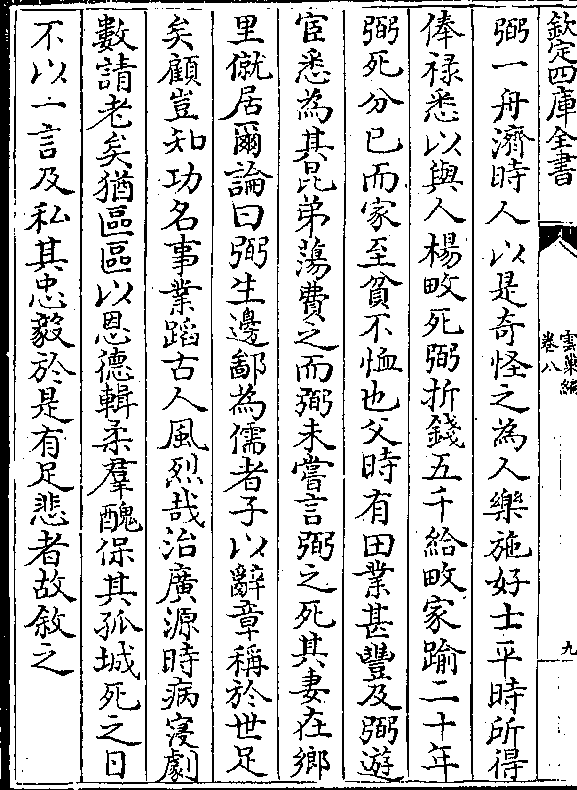 欽定四庫全書
雲巢編
卷八
九
弼一舟濟時人以是奇怪之為人樂施好士平時所得
俸禄悉以與人楊畋死弼折錢五千給畋家踰二十年
弼死分已而家至貧不恤也父時有田業甚豐及弼遊
宦悉為其昆弟蕩費之而弼未嘗言弼之死其妻在鄉
里僦居爾論曰弼生邊鄙為儒者子以辭章稱於世足
矣顧豈知功名事業蹈古人風烈哉治廣源時病寖劇
數請老矣猶區區以恩德輯柔羣醜保其孤城死之日
不以一言及私其忠毅於是有足悲者故敘之